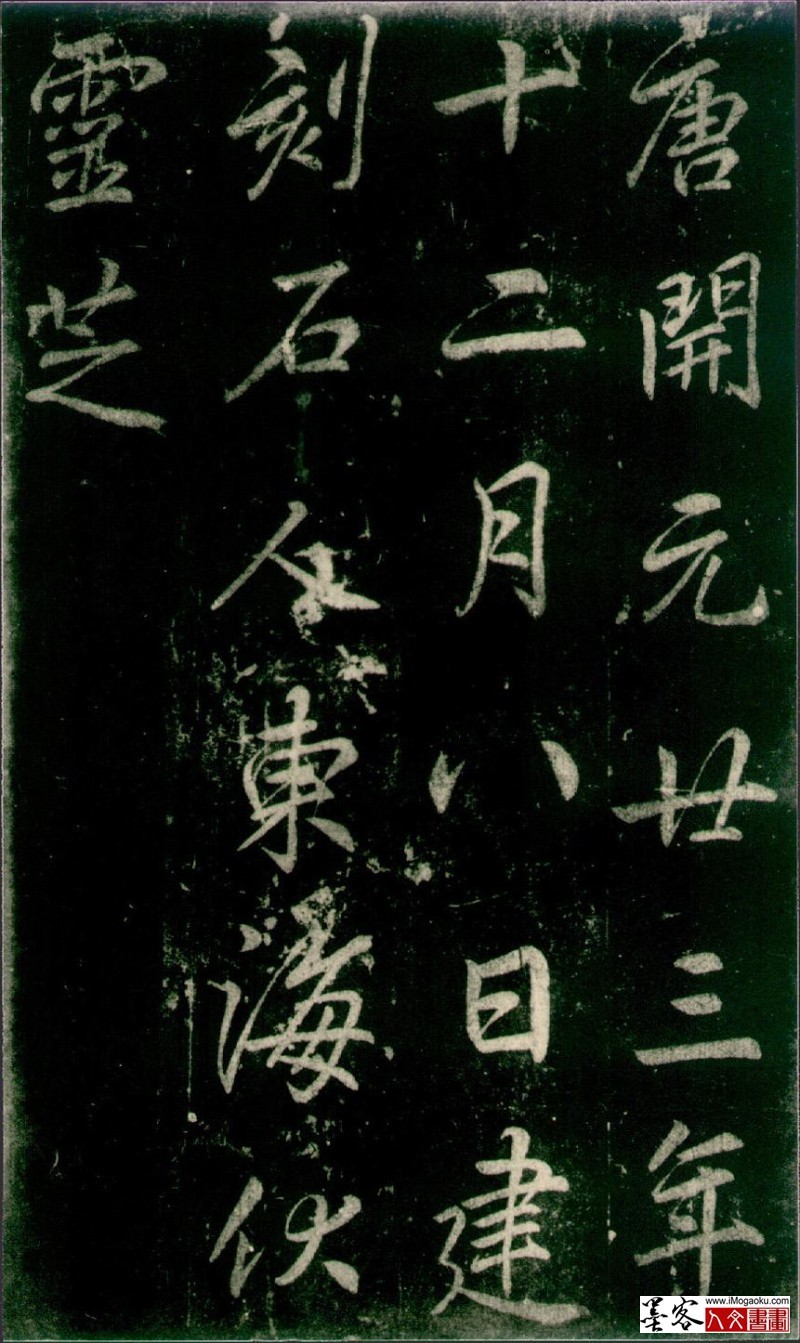 唐開元廿三年
十二月八日建
刻石人東海伏
靈芝
墨客 www.iMogaoku.com
人文書畫